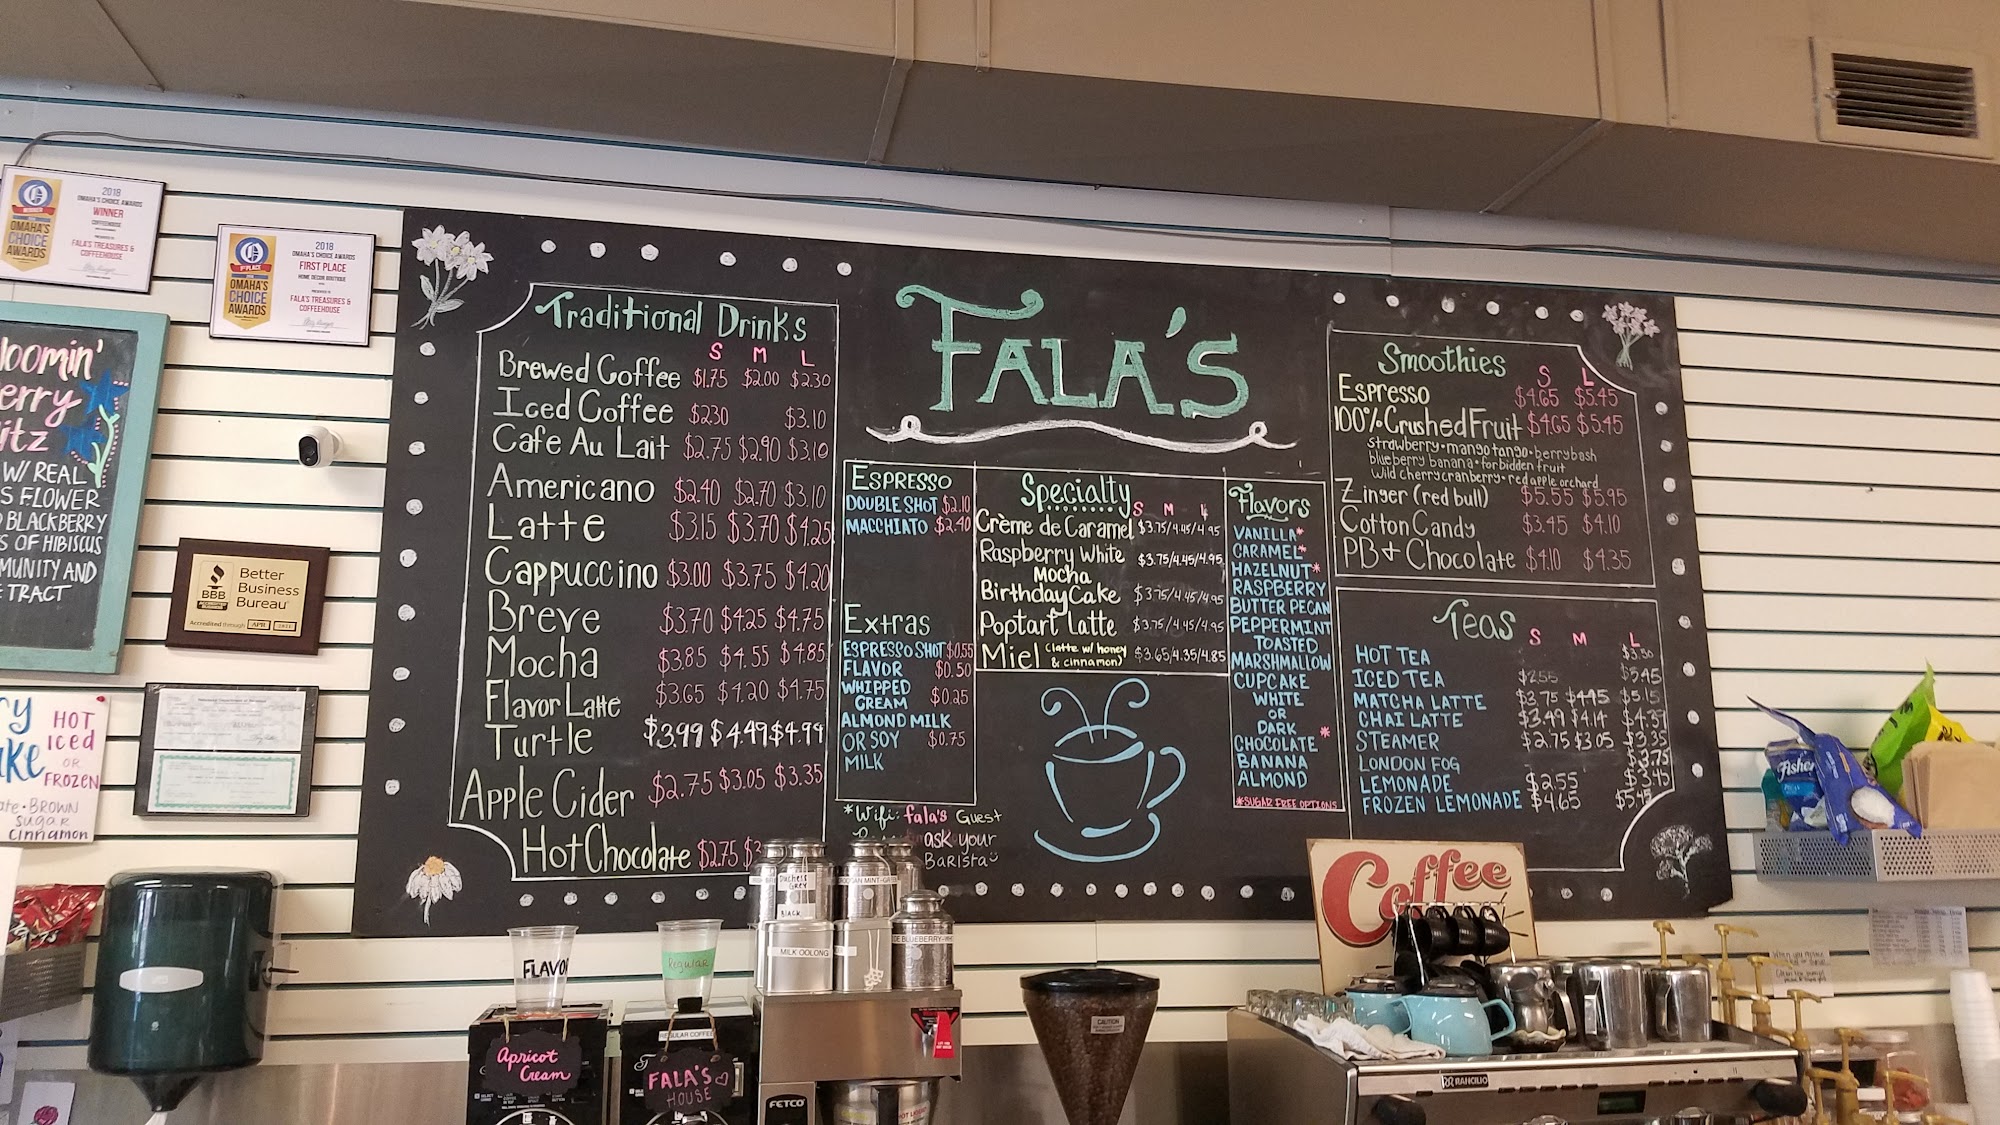 2018
OMAHA'S CHOICE AWARDS
WINNER
COFFEEHOUSE
FALA'S TREASURES &
COFFEEHOUSE
OMAHA'S
CHOICE
AWARDS
2018
OMAHA'S CHOICE AWARDS
FIRST PLACE
HOME DECOR BOUTIQUE
FALA'S TREASURES &
COFFEEHOUSE
1ST PLACE
OMAHA'S
CHOICE
AWARDS
loomin'
erry
itz
W/ REAL
S FLOWER
BLACKBERRY
S OF HIBISCUS
MUNITY AND
TRACT
BBB
Better
Business
Bureau
Accredited through APR
ry
ake
HOT
iced
OR
FROZEN
ate • BROWN
SUGAR
Cinnamon
FALA'S
Traditional Drinks
S M L
Brewed Coffee $1.75 $2.00 $2.30
Iced Coffee $2.30 $3.10
Cafe Au Lait $2.75 $2.90 $3.10
Americano $2.40 $2.70 $3.10
Latte $3.15 $3.70 $4.25
Cappuccino $3.00 $3.75 $4.20
Breve $3.70 $4.25 $4.75
Mocha $3.85 $4.55 $4.85
Flavor Latte $3.65 $4.20 $4.75
Turtle $3.99 $4.49 $4.99
Apple Cider $2.75 $3.05 $3.35
Hot Chocolate $2.75 $3
ESPRESSO
DOUBLE SHOT $2.10
MACCHIATO $2.40
Extras
ESPRESSO SHOT $0.55
FLAVOR $0.50
WHIPPED
CREAM $0.25
ALMOND MILK
OR SOY $0.75
MILK
*Wifi: fala's Guest
ask your
Barista
Specialty
S M L
Crème de Caramel $3.75/4.45/4.95
Raspberry White $3.75/4.45/4.95
Mocha
Birthday Cake $3.75/4.45/4.95
Poptart Latte $3.75/4.45/4.95
Miel (latte w/ honey $3.65/4.35/4.85
& cinnamon)
Flavors
VANILLA*
CARAMEL*
HAZELNUT*
RASPBERRY
BUTTER PECAN
PEPPERMINT
TOASTED
MARSHMALLOW
CUPCAKE
WHITE
OR
DARK
CHOCOLATE *
BANANA
ALMOND
*SUGAR FREE OPTIONS
Smoothies
S L
Espresso $4.65 $5.45
100% Crushed Fruit $4.65 $5.45
strawberry • mango tango • berry bash
blueberry banana • forbidden fruit
wild cherry cranberry • red apple orchard
Zinger (red bull) $5.55 $5.95
Cotton Candy $3.45 $4.10
PB + Chocolate $4.10 $4.35
Teas
S M L
HOT TEA $3.50
ICED TEA $2.55 $5.45
MATCHA LATTE $3.75 $4.45 $5.15
CHAI LATTE $3.49 $4.14 $4.39
STEAMER $2.75 $3.05 $3.35
LONDON FOG $3.75
LEMONADE $2.55 $3.45
FROZEN LEMONADE $4.65 $5.45
Coffee
Fisher
FLAVOR
Regular
REGULAR COFFEE
Apricot
Cream
FALA'S
HOUSE
Duchess
GREY
BLACK
MILK OOLONG
FETCO
CAUTION
RANCILIO